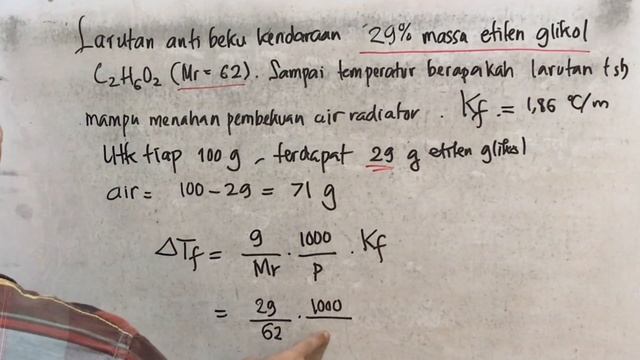 Larutan anti beku kendaraan 29% massa etilen glikol
C2H6O2 (Mr = 62). Sampai temperatur berapakah larutan tsb
mampu menahan pembekuan air radiator. Kf = 1,86 °C/m
Utk tiap 100 g ~ terdapat 29 g etilen glikol
air = 100 - 29 = 71 g
ΔTf = g/Mr . 1000/P . Kf
= 29/62 . 1000